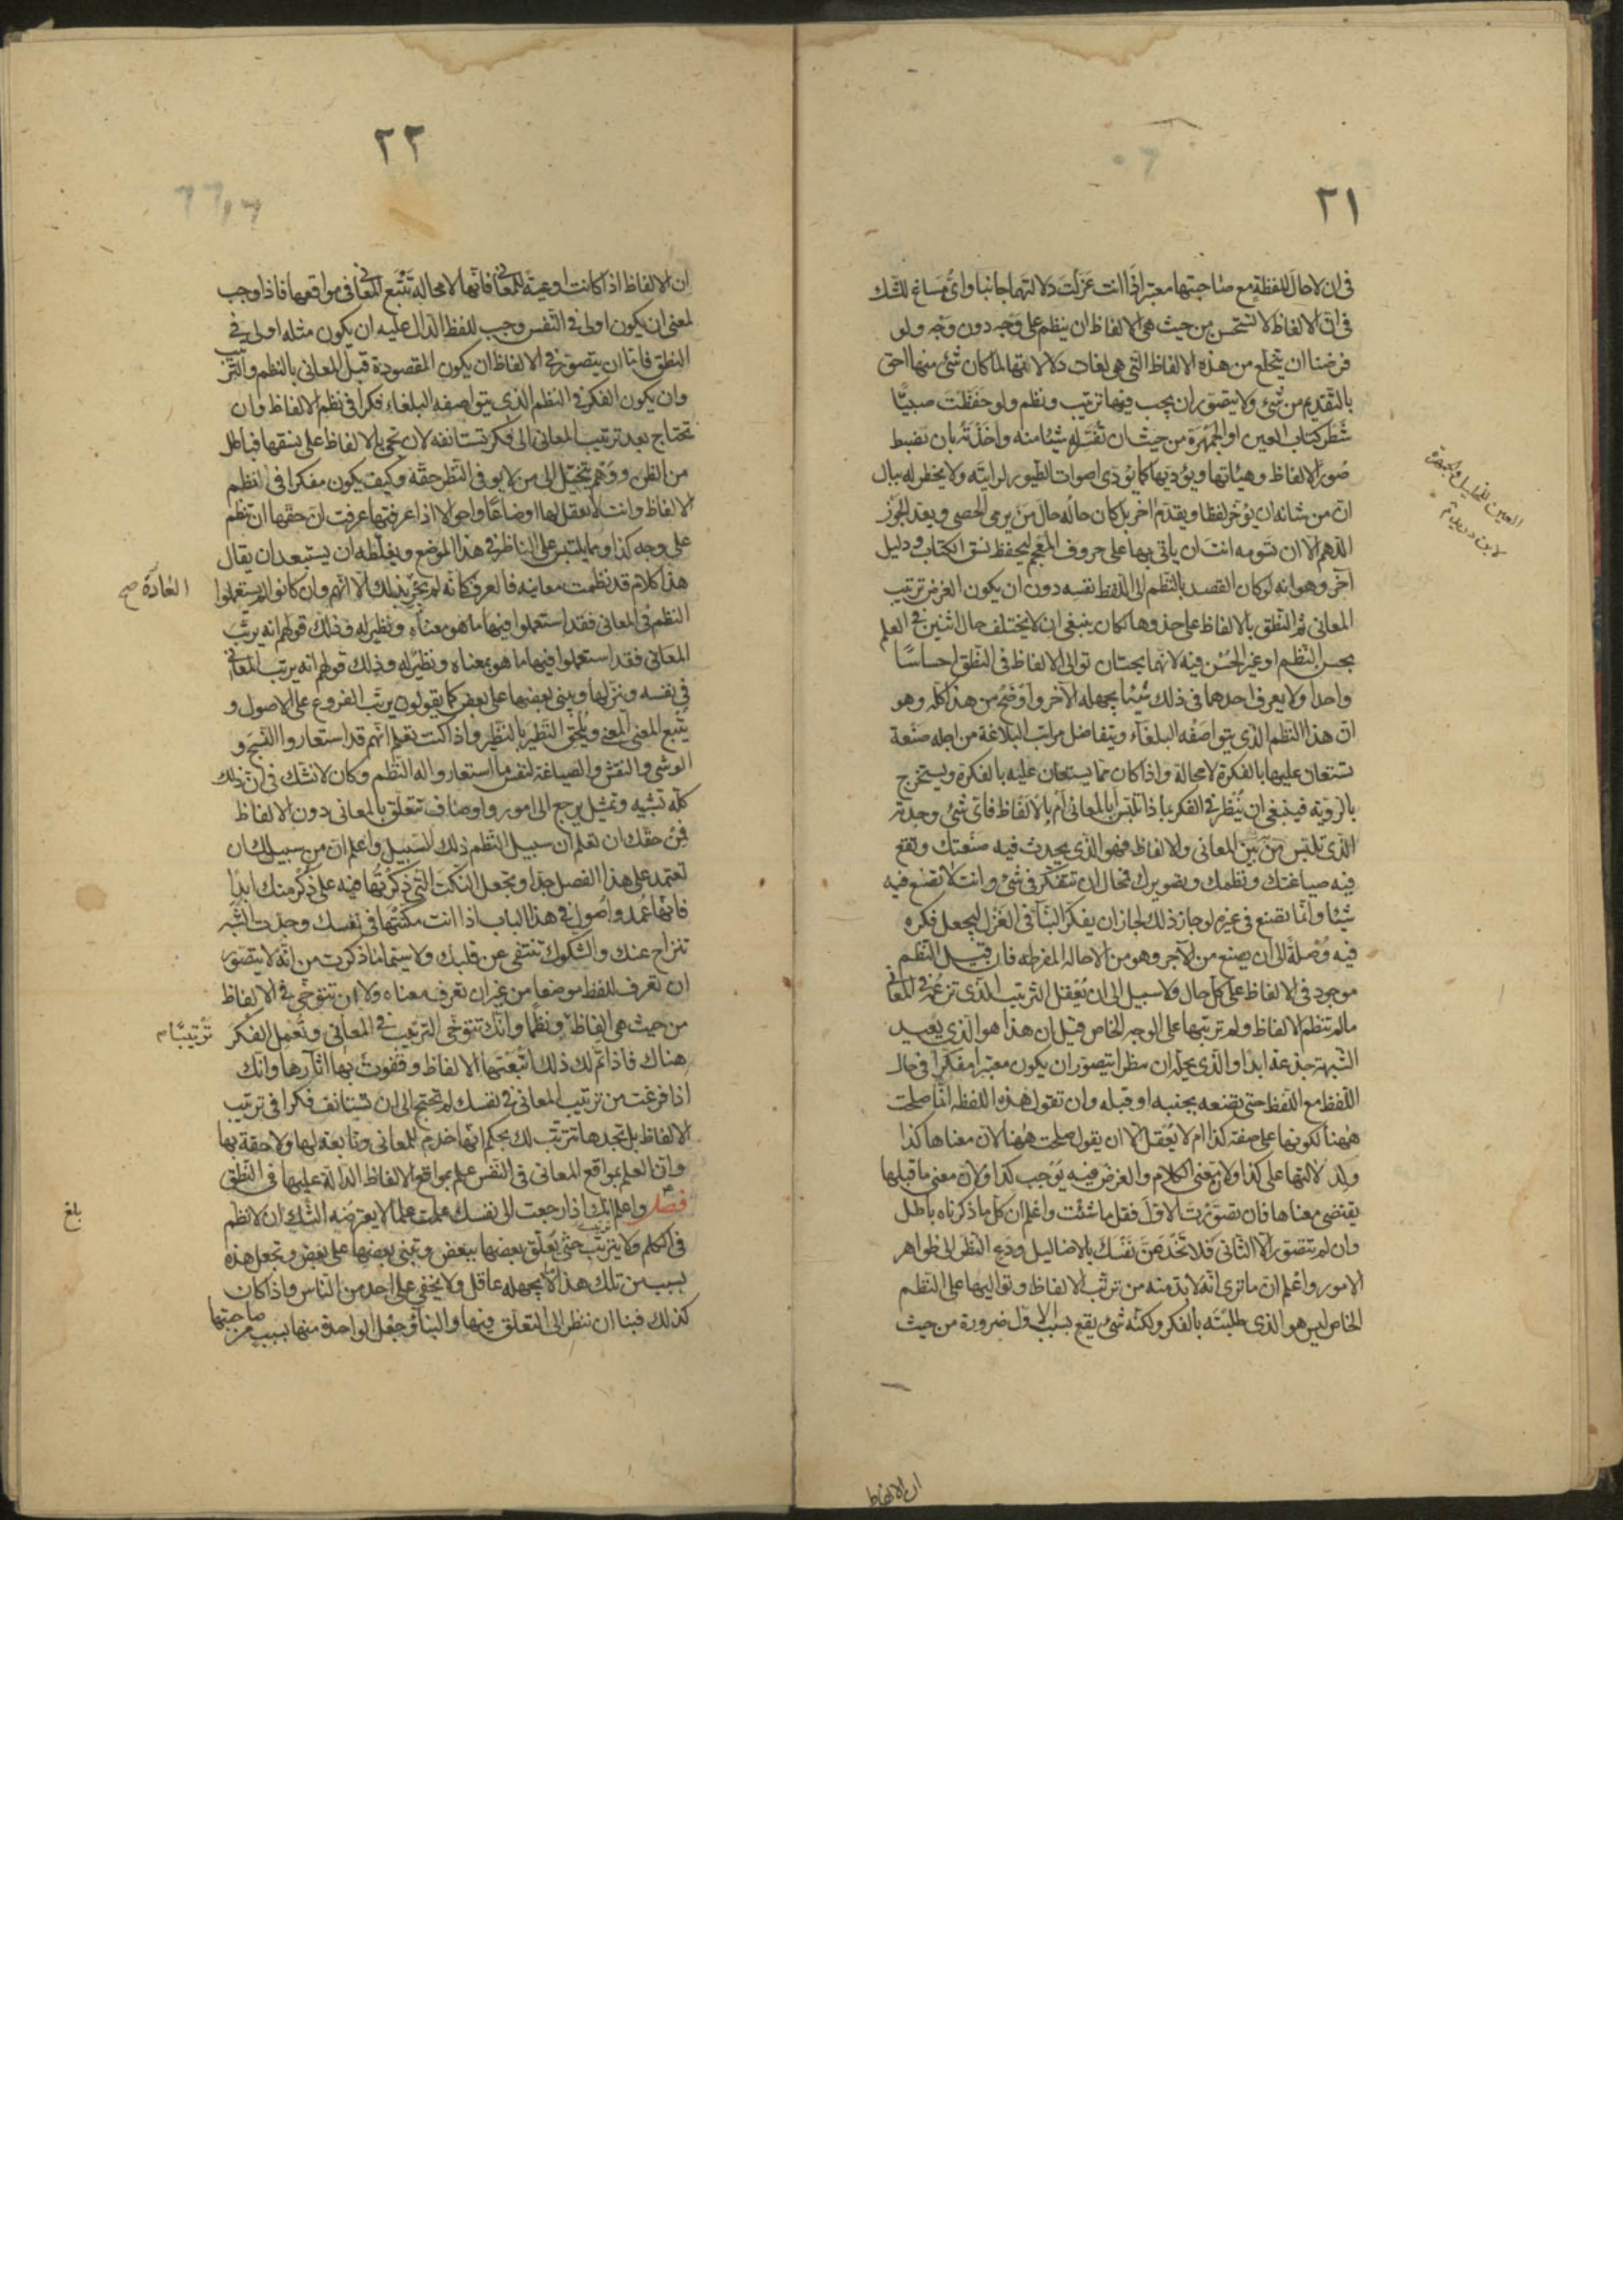 ٢١
فى ان لا حال للفظة مع صاحبتها معتبر اذا انت عزلت دلالتهما جانبا واى مساغ للشك
فى ان الالفاظ لا تستحسن من حيث هى الالفاظ ان ينظم على وجه دون وجه ولو
فرضنا ان تنخلع من هذه الالفاظ التى هى لغات دلالاتها لما كان شئ منها احق
بالتقديم من شئ ولا يتصور ان يجب فيها ترتيب ونظم ولو حفظت صبيا
شطر كتاب العين او الجمهرة من حيث ان تفسر له شيئا منه واخذته بان يضبط
صور الالفاظ وهيئاتها ويؤديها كما يؤدى اصوات الطيور لرايته ولا يخطر له ببال
ان من شانه ان يؤخر لفظا ويقدم اخر بل كان حاله حال من يرمى الحصى ويعد الجوز
اللهم الا ان تسومه انت ان ياتى بها على حروف المعجم ليحفظ نسق الكتاب ودليل
آخر وهو انه لو كان القصد بالنظم الى اللفظ نفسه دون ان يكون الغرض ترتيب
المعانى ثم النطق بالالفاظ على حذوها لكان ينبغى ان لا يختلف حال اثنين فى العلم
بحسن النظم او غير الحسن فيه لانهما يحسان توالى الالفاظ فى النطق احساسا
واحدا ولا يعرف احدهما فى ذلك شيئا يجهله الآخر واوضح من هذا كله وهو
ان هذا النظم الذى يتواصفه البلغاء ويتفاضل مراتب البلاغة من اجله صنعة
تستعان عليها بالفكرة لا محالة واذا كان مما يستعان عليه بالفكرة ويستخرج
بالروية فينبغى ان ينظر فى الفكر بماذا تلتبس أبالمعانى أم بالالفاظ فاى شئ وجدته
الذى تلتبس من بين المعانى والالفاظ فهو الذى يحدث فيه صنعتك وتقع
فيه صياغتك ونظمك وتصويرك فمحال ان تتفكر فى شئ وانت لا تصنع فيه
شيئا وانما تصنع فى غيره لو جاز ذلك لجاز ان يفكر البنآ فى الغزل ليجعل فكره
فيه وصلة الى أن يصنع من الآجر وهو من الاحالة المفرطه فان قيل النظم
موجود فى الالفاظ على كل حال ولا سبيل الى ان يعقل الترتيب الذى تزعمه فى المعانى
مالم تنظم الالفاظ ولم ترتبها على الوجه الخاص قيل ان هذا هو الذى يعيد
الشبهة جذعة ابدا والذى يحله ان تنظر أيتصور ان يكون معتبرا مفكرا فى حال
اللفظ مع اللفظ حتى يضعه بجنبه او قبله وان تقول هذه اللفظة انما صلحت
ههنا لكونها على صفة كذا ام لا يعقل الا ان يقول صلحت ههنا لان معناها كذا
ولدلالتها على كذا ولان معنى الكلام والغرض فيه يوجب كذا ولان معنى ما قبلها
يقتضى معناها فان تصورت الاول فقل ما شئت واعلم ان كل ما ذكرناه باطل
وان لم تتصور الا الثانى فلا تخدعن نفسك بالاضاليل ودع النظر الى ظواهر
الامور واعلم ان ما ترى انه لا بد منه من ترتب الالفاظ وتواليها على النظم
الخاص ليس هو الذى طلبته بالفكر ولكنه شئ يقع بسبب الاول ضرورة من حيث
العين للخليل والجمهرة
لابن دريد
ان الالفاظ
٢٢
ان الالفاظ اذا كانت اوعية للمعانى فانها لا محالة تتبع المعانى فى مواقعها فاذا وجب
لمعنى ان يكون اولى فى النفس وجب للفظ الدال عليه ان يكون مثله اولى فى
النطق فاما ان يتصور فى الالفاظ ان يكون المقصودة قبل المعانى بالنظم والترتيب
وان يكون الفكر فى النظم الذى يتواصفه البلغاء فكرا فى نظم الالفاظ وان
تحتاج بعد ترتيب المعانى الى فكر تستانفه لان تجئ بالالفاظ على نسقها فباطل
من الظن ووهم يتخيل الى من لا يوفى النظر حقه وكيف يكون مفكرا فى انظم
الالفاظ وانت لا تعقل لها اوضاعا واحوالا اذا عرفتها عرفت ان حقها ان تنظم
على وجه كذا ومما يلتبس على الناظر فى هذا الموضع ويغلطه ان يستبعد ان يقال
هذا كلام قد نظمت معانيه فالعرف كانه لم يجر بذلك الا انهم وان كانوا لم يستعملوا
العادة صح
النظم فى المعانى فقد استعملوا فيها ما هو معناه ونظير له وذلك قولهم انه يرتب
المعانى فقد استعملوا فيها ما هو بمعناه ونظير له وذلك قولهم انه يرتب المعانى
فى نفسه وينزلها ويبنى بعضها على بعض كما يقولون يرتب الفروع على الاصول و
يتبع المعنى المعنى ويلحق النظير بالنظير واذا كنت تعلم انهم قد استعاروا النسج و
الوشى والنقش والصياغة لنفس ما استعاروا له النظم وكان لا نشك فى ان ذلك
كله تشبيه وتمثيل يرجع الى امور واوصاف تتعلق بالمعانى دون الالفاظ
فمن حقك ان تعلم ان سبيل النظم ذلك السبيل واعلم ان من سبيلك ان
تعتمد على هذا الفصل جدا وتجعل النكت التى ذكرتها فيه على ذكر منك ابدا
فانها عمد واصول فى هذا الباب اذا انت مكنتها فى نفسك وجدت الشبه
تنزاح عنك والشكوك تنتفى عن قلبك ولا سيما ما ذكرت من انه لا يتصور
ان تعرف للفظ موضعا من غير ان تعرف معناه ولا ان تتوخى فى الالفاظ
من حيث هى الفاظ ونظما وانك تتوخى الترتيب فى المعانى وتعمل الفكر
ترتيبا
هناك فاذا تم لك ذلك اتبعتها الالفاظ وقفوت بها اثآرها وانك
اذا فرغت من ترتيب المعانى فى نفسك لم تحتج الى ان تستانف فكرا فى ترتيب
الالفاظ بل تجدها تترتب لك بحكم انها خدم للمعانى وتابعة لها ولاحقة بها
وان العلم بمواقع المعانى فى النفس علم بمواقع الالفاظ الدالة عليها فى النطق
فصل واعلم انك اذا رجعت الى نفسك علمت علما لا يعترضه الشك ان لا نظم
بلغ
فى الكلم ولا ترتيب حتى يعلق بعضها ببعض وتبنى بعضها على بعض وتجعل هذه
بسبب من تلك هذا ما لا يجهله عاقل ولا يخفى على احد من الناس واذا كان
كذلك فبنا ان ننظر الى التعلق فيها والبنآء وجعل الواحدة منها بسبب من صاحبتها